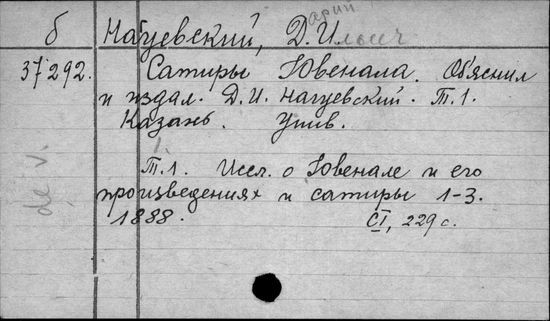 б Нагуевский, Дарий Ильич
37292. Сатиры Ювенала. Объяснил
и издал. Д. И. Нагуевский. Т. 1.
Казань. Унив.
1.
Т. 1. Иссл. о Ювенале и его
произведениях и сатиры 1-3.
1888. CI, 229 с.
de v.